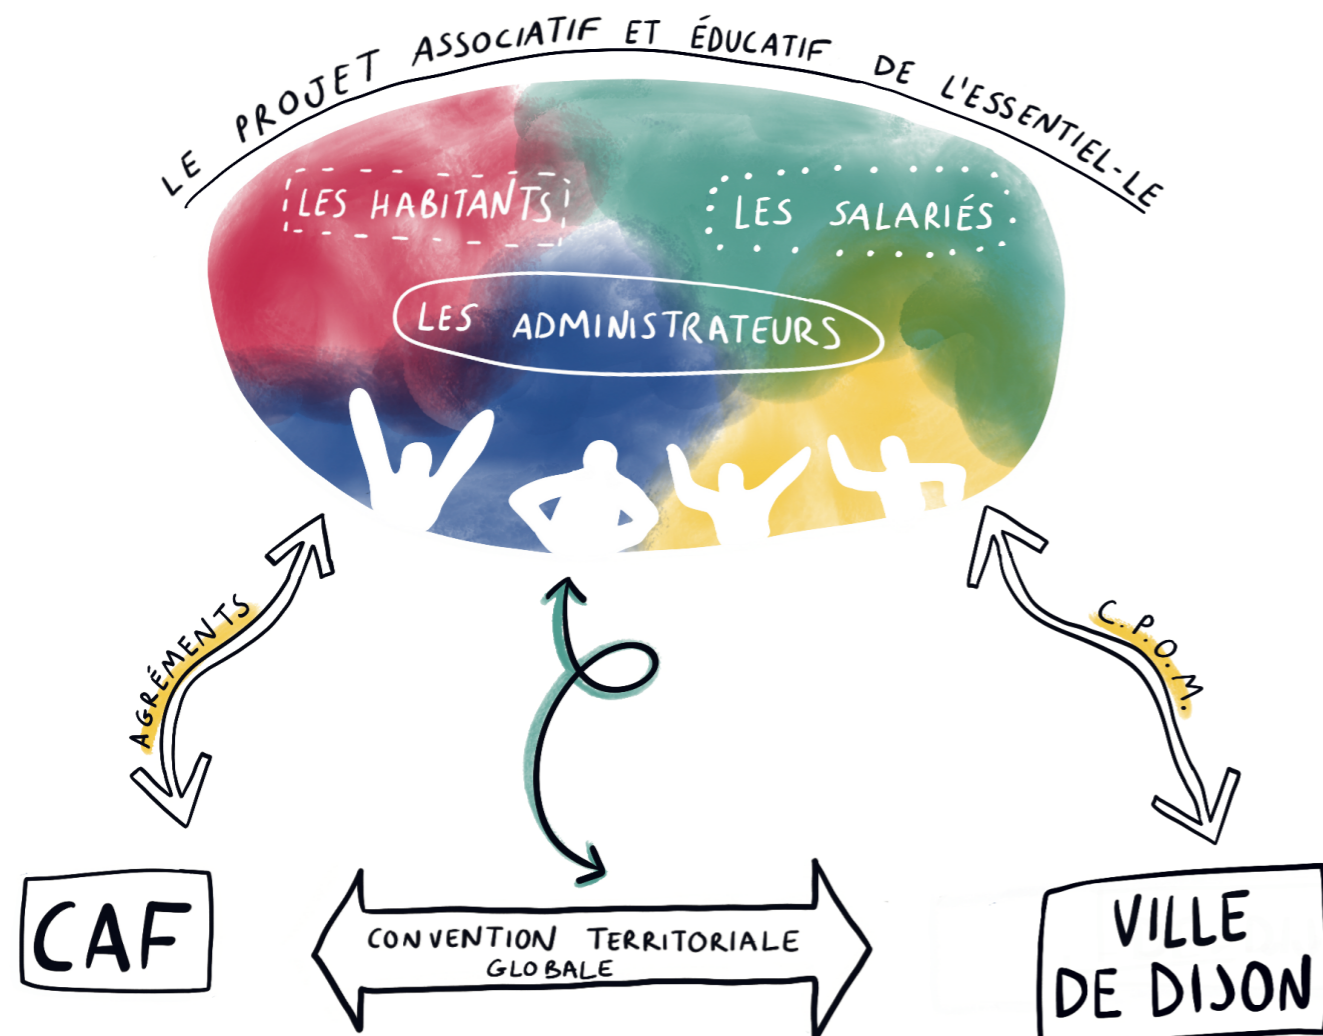 LE PROJET ASSOCIATIF ET ÉDUCATIF DE L'ESSENTIEL-LE
LES HABITANTS
LES SALARIÉS
LES ADMINISTRATEURS
AGRÉMENTS
C.P.O.M.
CAF
CONVENTION TERRITORIALE
GLOBALE
VILLE
DE DIJON